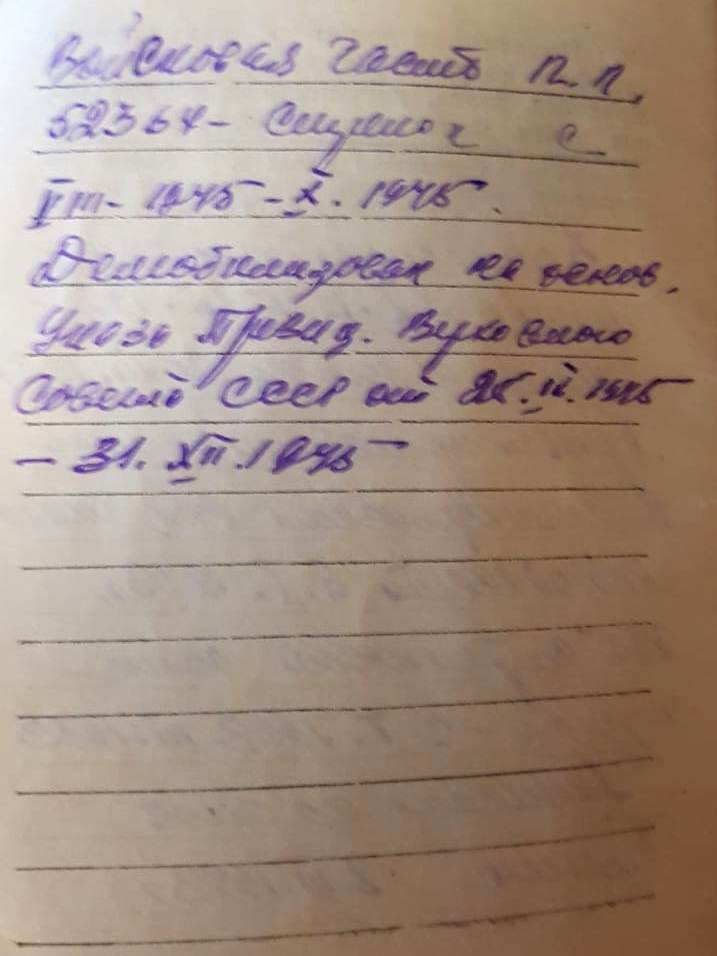 Войсковая часть п.п.
52364 - с
VIII - 1945 - X. 1945.
Демобилизован на основ.
Указа Презид. Верховного
Совета СССР от 25. IX. 1945
- 31. XII. 1945